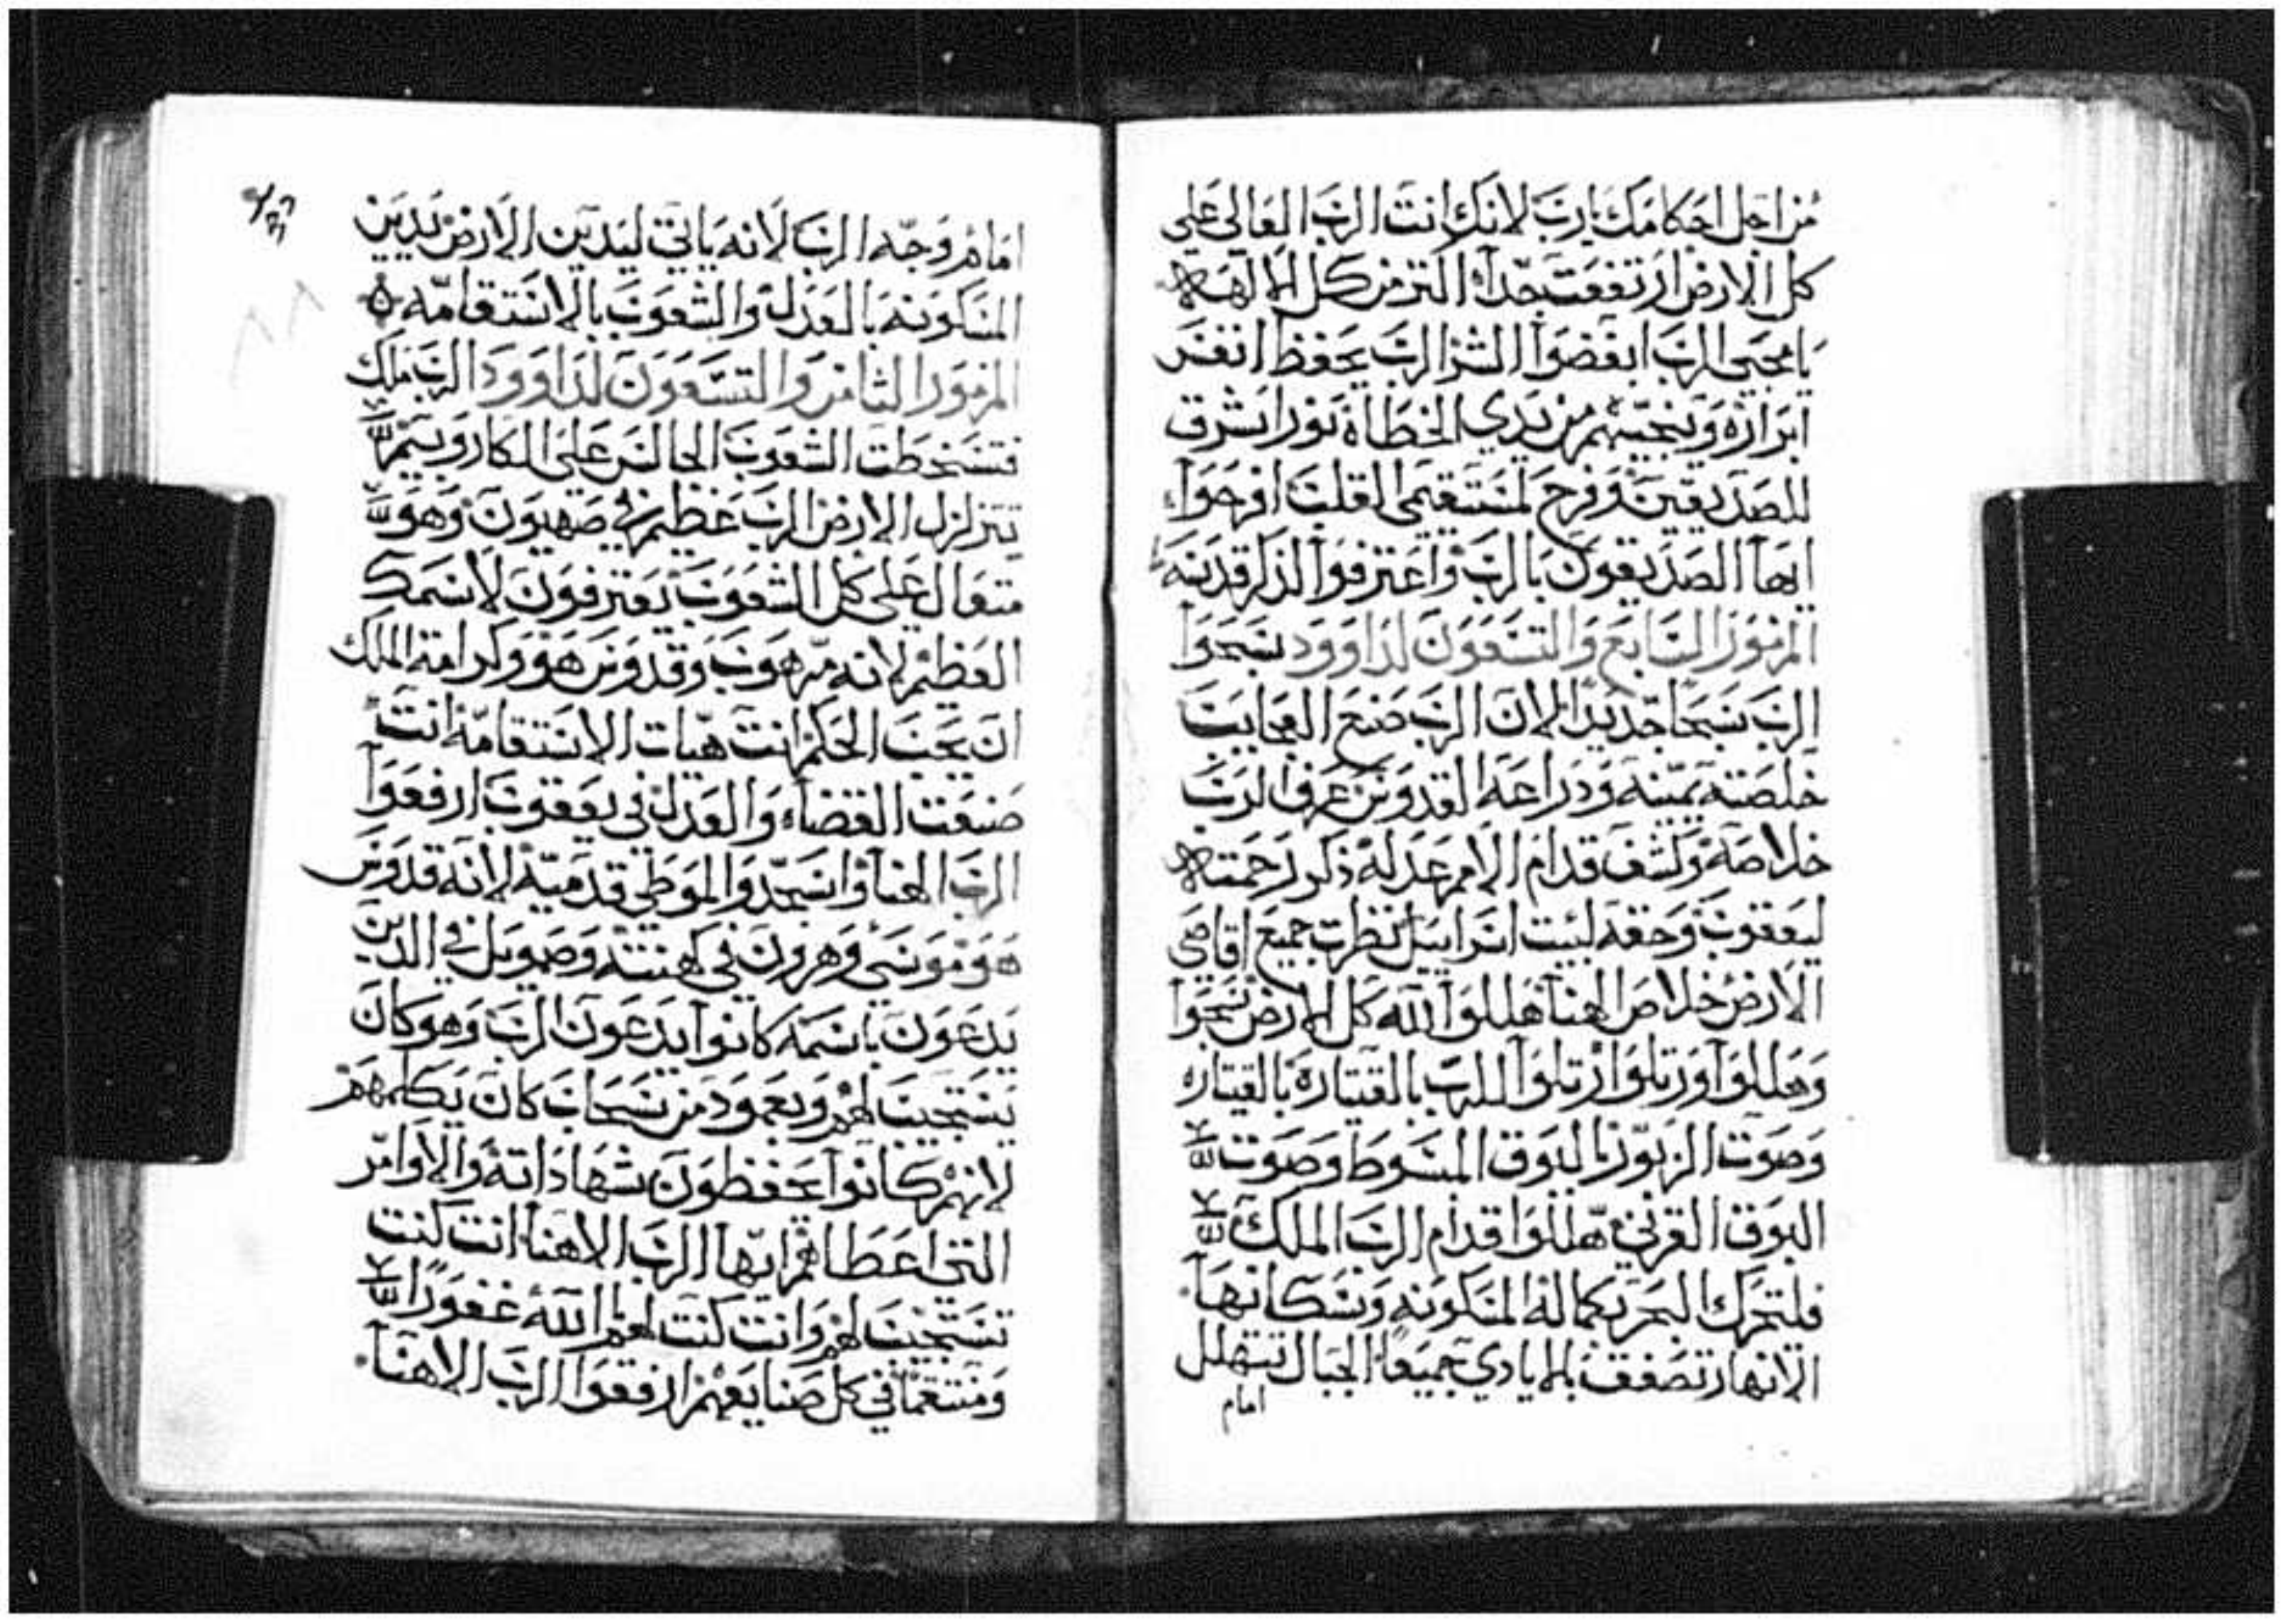 من اجل احكامك يارب لانك انت الرب العالى على
كل الارض ارتفعت جدا اكتر من كل الالهه
يا محبى الرب ابغضوا الشر الرب يحفظ انفس
ابراره وينجيهم من يدي الخطاة نور اشرق
للصديقين وفرح لمستقيمى القلب افرحوا
ايها الصديقون بالرب واعترفوا لذكر قدسه
المزمور السابع والتسعون لداوود سبحوا
الرب تسبحا جديدا لان الرب صنع العجايب
خلصته يمينه وذراعه القدوس عرف الرب
خلاصه وكشف قدام الامم عدله ذكر رحمته
ليعقوب وحقه لبيت اسراييل نظرت جميع اقاصي
الارض خلاص الهنا هللوا لله كل الارض سبحوا
وهللوا ورتلوا رتلوا للرب بالقيتارة بالقيتاره
وصوت الزبور بالبوق المسوط وصوت
البوق القرني هللوا قدام الرب الملك
فليتحرك البحر بكماله المسكونه وسكانها
الانهار تصفق بالايادي جميعا الجبال تتهلل
امام
امام وجه الرب لانه ياتي ليدين الارض يدين
المسكونه بالعدل والشعوب بالاستقامه
المزمور الثامن والتسعون لداوود الرب ملك
فتسخطت الشعوب الجالس على الكاروبيم
تتزلزل الارض الرب عظيم في صهيون وهو
متعال على كل الشعوب يعترفون لاسمك
العظيم لانه مرهوب وقدوس هو وكرامة الملك
ان يحب الحكم انت هيات الاستقامه انت
صنعت القضاء والعدل في يعقوب ارفعوا
الرب الهنا واسجدوا لموطي قدميه لانه قدوس
هو موسى وهرون في كهنته وصمويل في الدين
يدعون باسمه كانوا يدعون الرب وهو كان
يستجيب لهم وبعمود من سحاب كان يكلمهم
لانهم كانوا يحفظون شهاداته والاوامر
التي اعطاهم ايها الرب الاهنا انت كنت
تستجيب لهم وانت كنت لهم الله غفورا
ومنتقما في كل صنايعهم ارفعوا الرب الاهنا